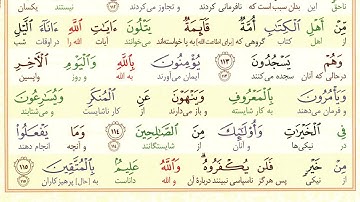 ناحق این بدان سبب است که نافرمانی کردند و تجاوز می‌کردند نیستند یکسان
مِّنْ أَهْلِ ٱلْكِتَٰبِ أُمَّةٌ قَآئِمَةٌ يَتْلُونَ ءَايَٰتِ ٱللَّهِ ءَانَآءَ ٱلَّيْلِ
از اهل کتاب گروهی که (برای اطاعت الله) به پا خواسته‌اند می‌خوانند آیات الله را در اوقات شب
وَهُمْ يَسْجُدُونَ ١١٣ يُؤْمِنُونَ بِٱللَّهِ وَٱلْيَوْمِ ٱلْءَاخِرِ
درحالی که آنان سجده می‌کنند ۱۱۳ ایمان می‌آورند به الله و روز واپسین
وَيَأْمُرُونَ بِٱلْمَعْرُوفِ وَيَنْهَوْنَ عَنِ ٱلْمُنكَرِ وَيُسَٰرِعُونَ
و فرمان می‌دهند به کار شایسته و باز می‌دارند از کار ناشایست و می‌شتابند
فِي ٱلْخَيْرَٰتِ وَأُو۟لَٰٓئِكَ مِنَ ٱلصَّٰلِحِينَ ١١٤ وَمَا يَفْعَلُوا۟
در نیکی‌ها و آنان از شایستگانند ۱۱۴ و آنچه انجام دهند
مِنْ خَيْرٍ فَلَن يُكْفَرُوهُ وَٱللَّهُ عَلِيمٌۢ بِٱلْمُتَّقِينَ ١١٥
از نیکی پس هرگز ناسپاسی نبینند درباره آن و الله داناست به (حال) پرهیزکاران ۱۱۵